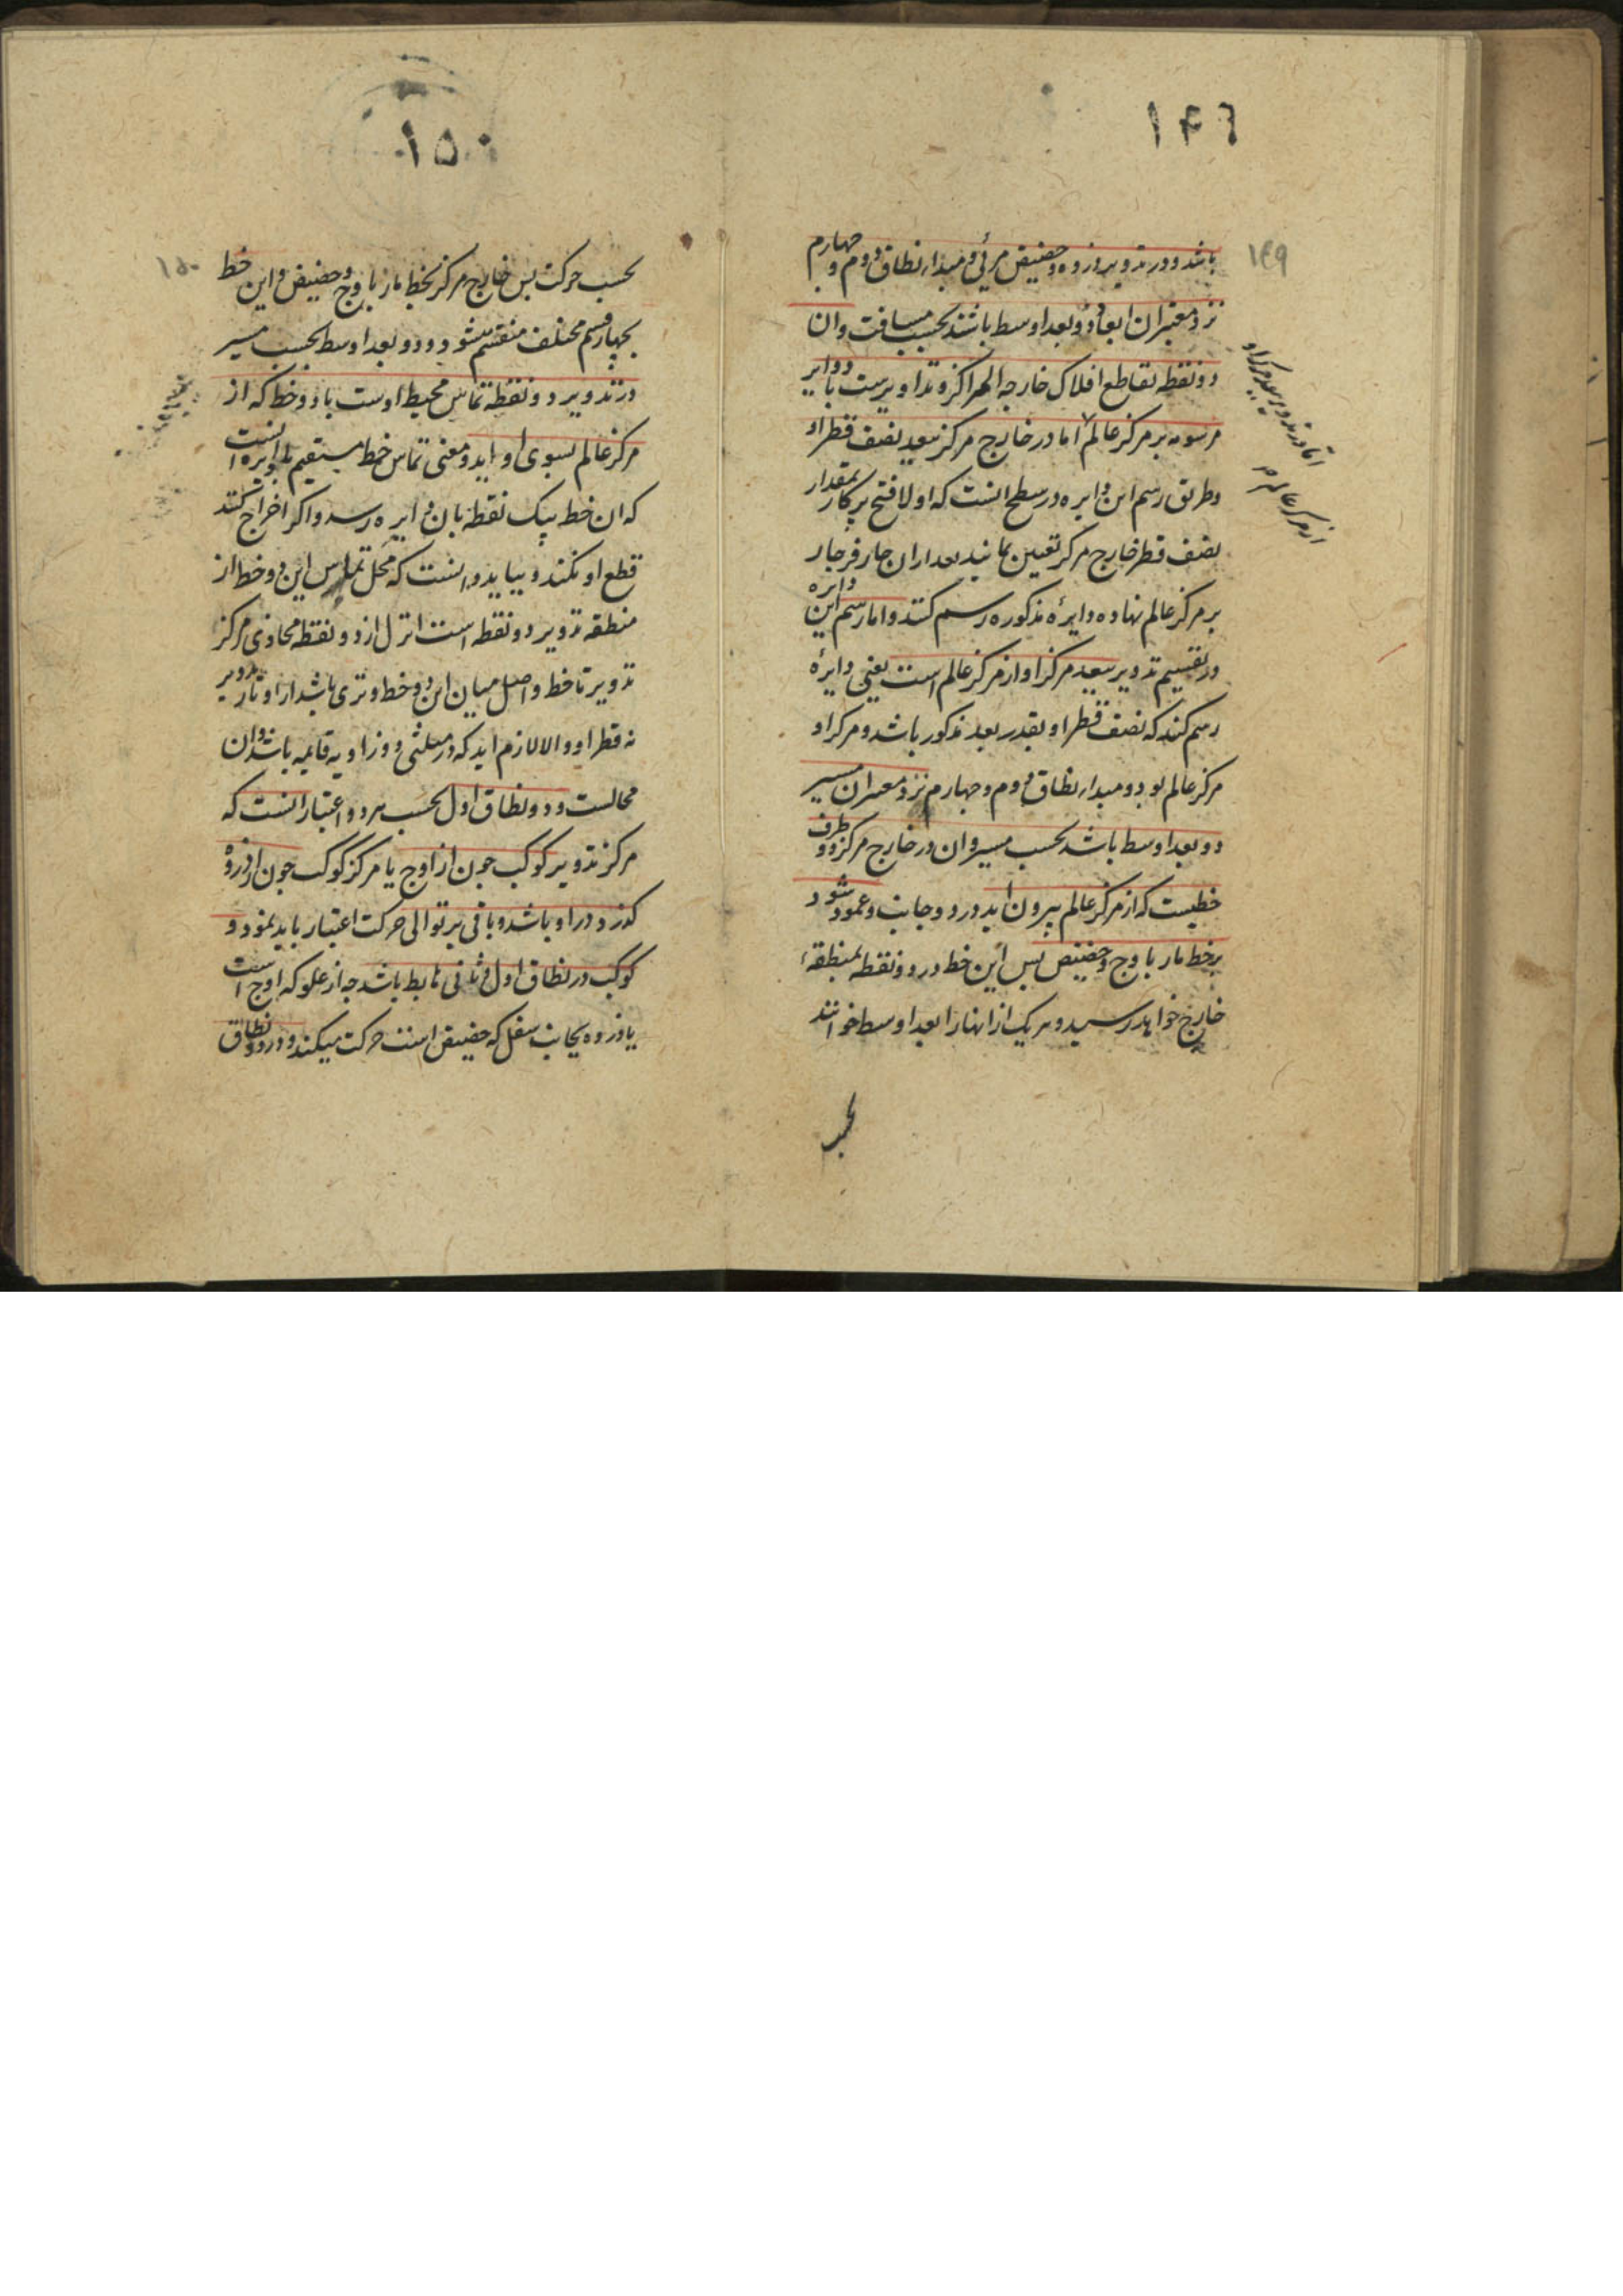 ۱۴۹
باشد و در تدویر ذروه و حضیض مرئی و مبداء نطاق دوم و چهارم
نزد معتبران ابعاد دو بعد اوسط باشند بحسب مسافت و ان
دو نقطه تقاطع افلاک خارجه المراکز و تداویرست با دوایر
مرسومه بر مرکز عالم اما در خارج مرکز ببعد نصف قطر او
و طریق رسم این دایره در سطح انست که اولا فتح پرکار بمقدار
نصف قطر خارج مرکز تعیین نمایند بعد ازان
بر مرکز عالم نهاده دایرهٔ مذکوره رسم کنند و اما رسم این دایره
در تقسیم تدویر ببعد مرکز او از مرکز عالم است یعنی دایرهٔ
رسم کند که نصف قطر او بقدر بعد مذکور باشد و مرکز او
مرکز عالم بود و مبداء نطاق دوم و چهارم نزد معتبران مسیر
دو بعد اوسط باشد بحسب مسیر و ان در خارج مرکز دو طرف
خطیست که از مرکز عالم بیرون اید در دو جانب و عمود شود
بر خط مار باوج و حضیض پس این خط در دو نقطه بمنطقهٔ
خارج خواهد رسید و هریک از انها را بعد اوسط خوانند
بحسب
اما در تدویر ببعد مرکز او
از مرکز عالم
۱۵۰
بحسب حرکت پس خارج مرکز بخط مار باوج و حضیض و این خط
بچهار قسم مختلف منقسم میشود و دو بعد اوسط بحسب مسیر
در تدویر دو نقطه تماس محیط اوست با دو خط که از
مرکز عالم بسوی او اید و معنی تماس خط مستقیم با دایره انست
که ان خط بیک نقطه بان دایره رسد و اگر اخراج کنند
قطع او نکند و بباید دانست که محل تماس این دو خط از
منطقه تدویر دو نقطه است انزل از دو نقطه محاذی مرکز
تدویر تا خط واصل میان این دو خط وتری باشد از اوتار تدویر
نه قطر او و الا لازم اید که در مثلثی دو زاویه قایمه باشد و ان
محالست و دو نطاق اول بحسب هر دو اعتبار انست که
مرکز تدویر کوکب چون از اوج یا مرکز کوکب چون از ذروهٔ
گذرد در او باشد و باقی بر توالی حرکت اعتبار باید نمود و
کوکب در نطاق اول و ثانی هابط باشد چه از علو که اوج است
یا ذروه بجانب سفل که حضیض است حرکت میکند و در دو نطاق
۱۵۰